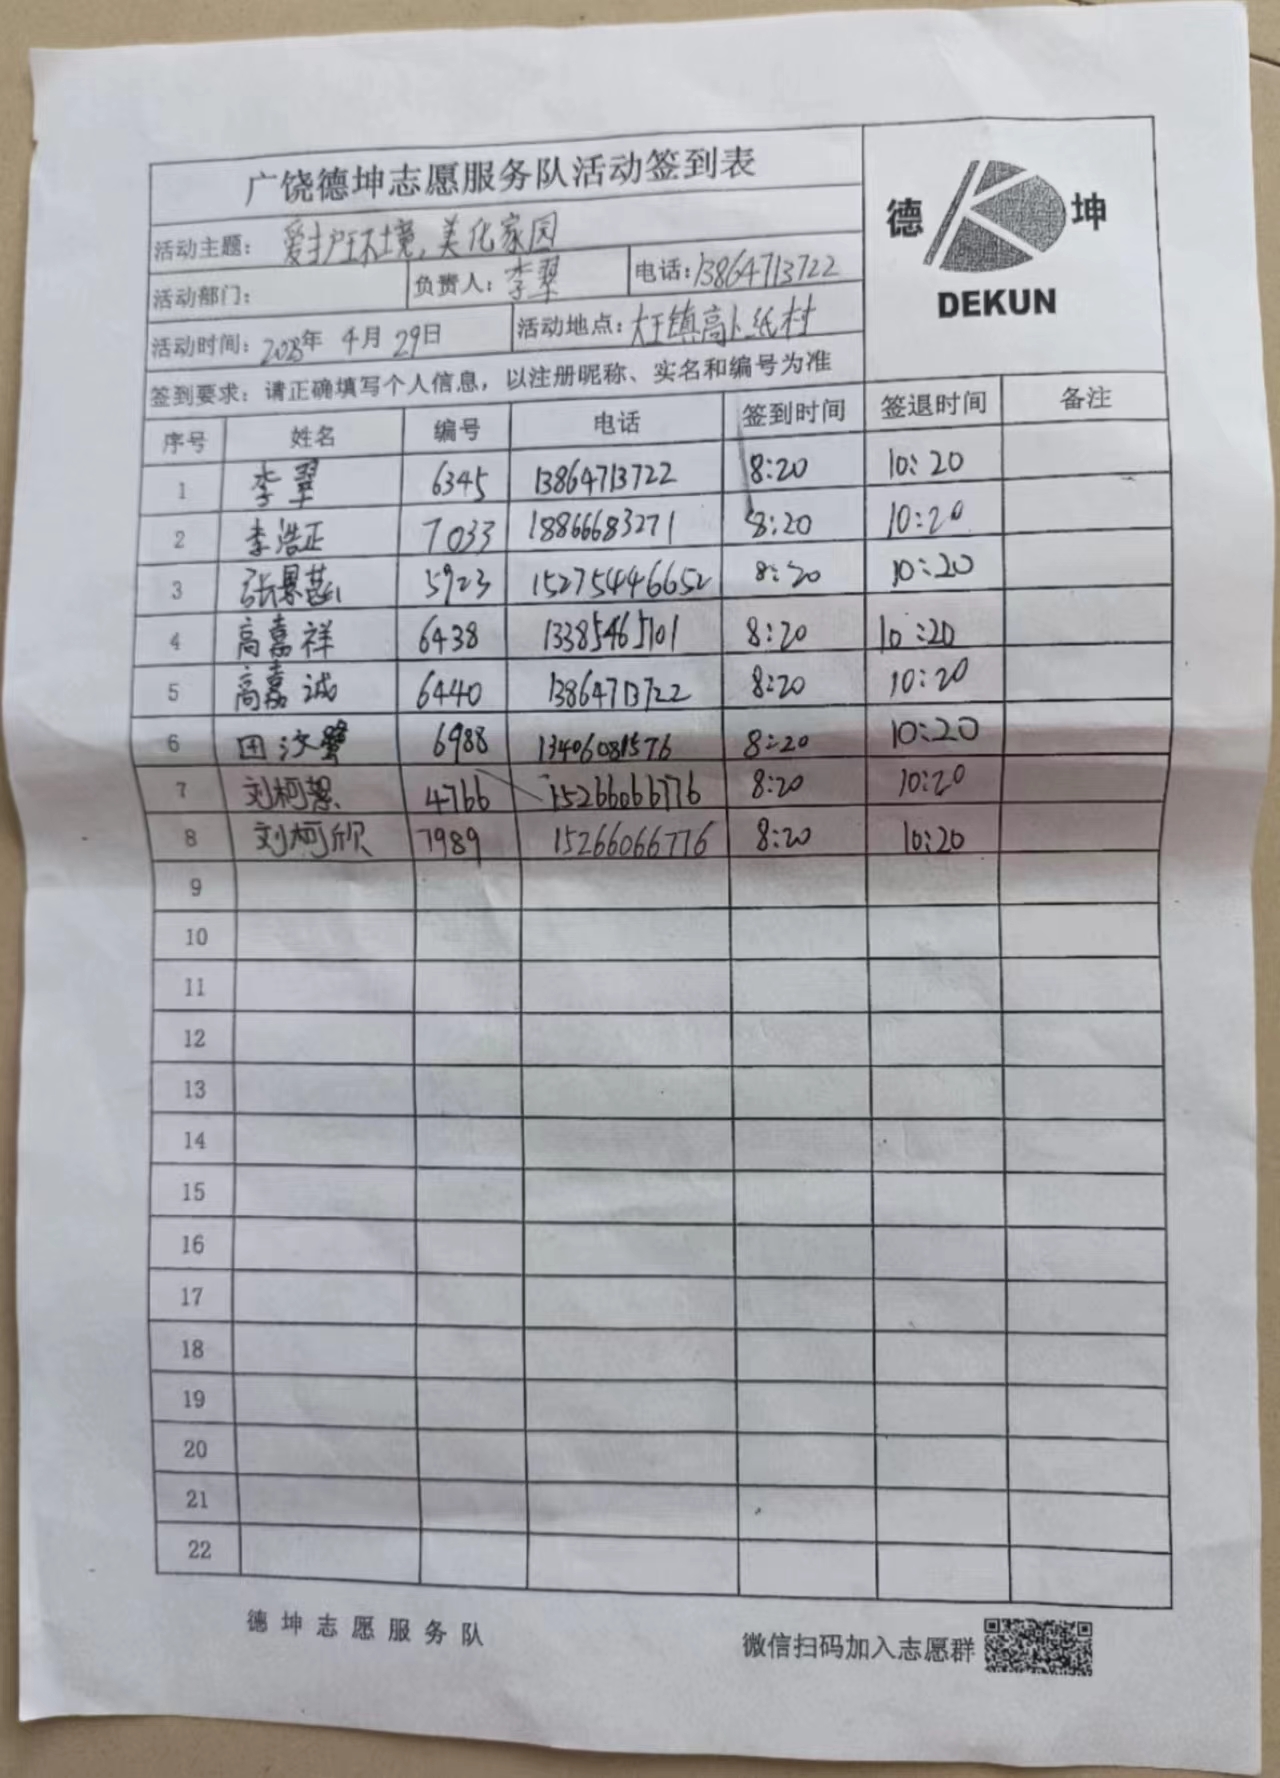 广饶德坤志愿服务队活动签到表
德 坤
DEKUN
活动主题： 爱护环境，美化家园
活动部门： 负责人：李翠 电话：13864713722
活动时间：2023年 4月 29日 活动地点：大王镇高卜纸村
签到要求：请正确填写个人信息，以注册昵称、实名和编号为准
序号 姓名 编号 电话 签到时间 签退时间 备注
1 李翠 6345 13864713722 8:20 10:20
2 李浩正 7033 18866683271 8:20 10:20
3 张恩 5923 15275446652 8:20 10:20
4 高嘉祥 6438 13385465101 8:20 10:20
5 高嘉诚 6440 13864713722 8:20 10:20
6 田汶 6988 13406081576 8:20 10:20
7 刘柯 4766 15266066776 8:20 10:20
8 刘柯欣 7989 15266066776 8:20 10:20
9
10
11
12
13
14
15
16
17
18
19
20
21
22
德坤志愿服务队 微信扫码加入志愿群